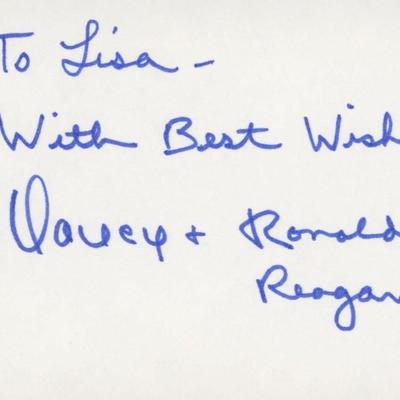 To Lisa -
With Best Wish
Nancy + Ronald
Reagan